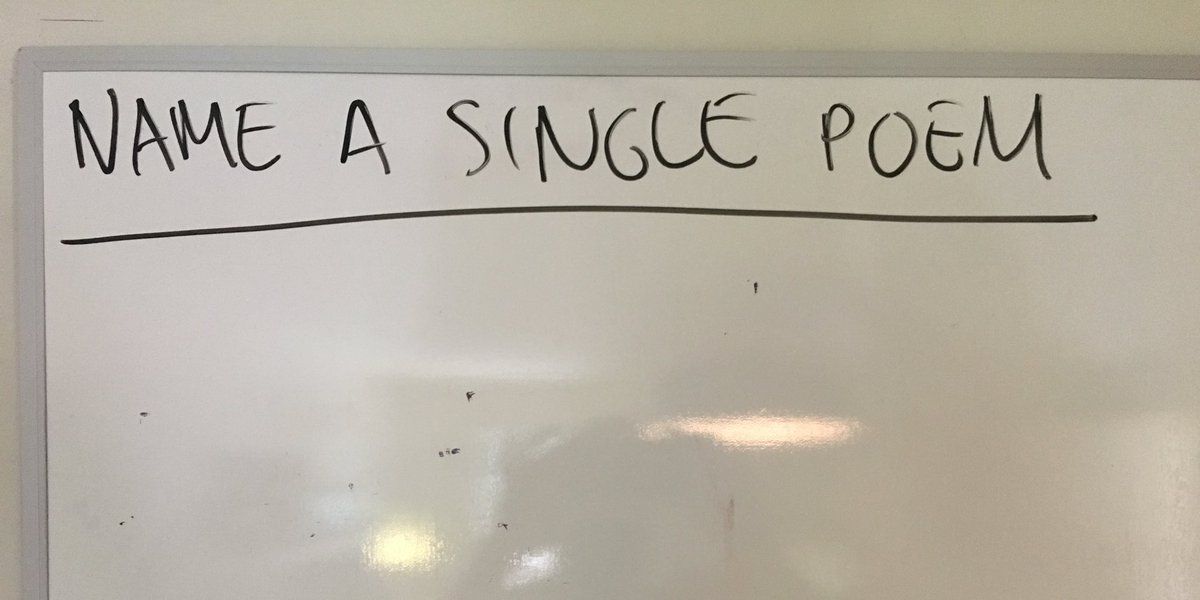 NAME A SINGLE POEM